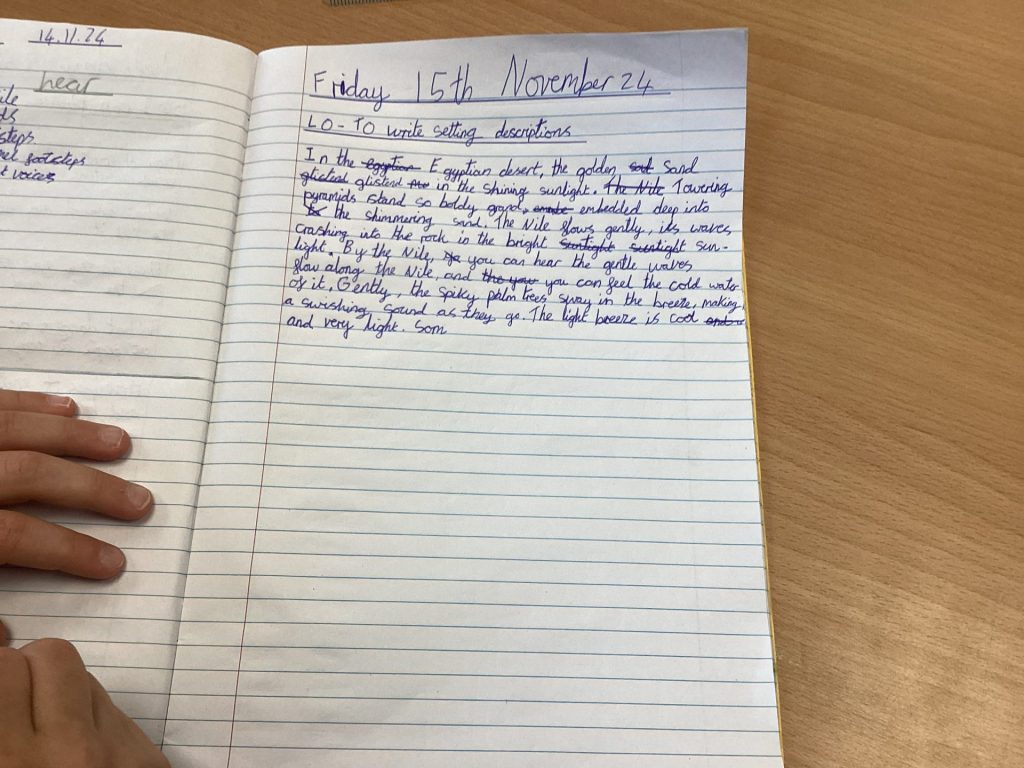 14.11.24
hear
steps
footsteps
voices
Friday 15th November 24
LO - TO write setting descriptions
In the egyptian Egyptian desert, the golden sand
glistend in the shining sunlight. The Nile Towering
pyramids stand so boldy grand, embedded deep into
the shimmering sand. The Nile flows gently, its waves
crashing into the rock in the bright sunlight sunlight sun-
light. By the Nile, you can hear the gentle waves
flow along the Nile, and the you you can feel the cold water
of it. Gently, the spiky palm trees sway in the breeze, making
a swishing sound as they go. The light breeze is cool
and very light. Som